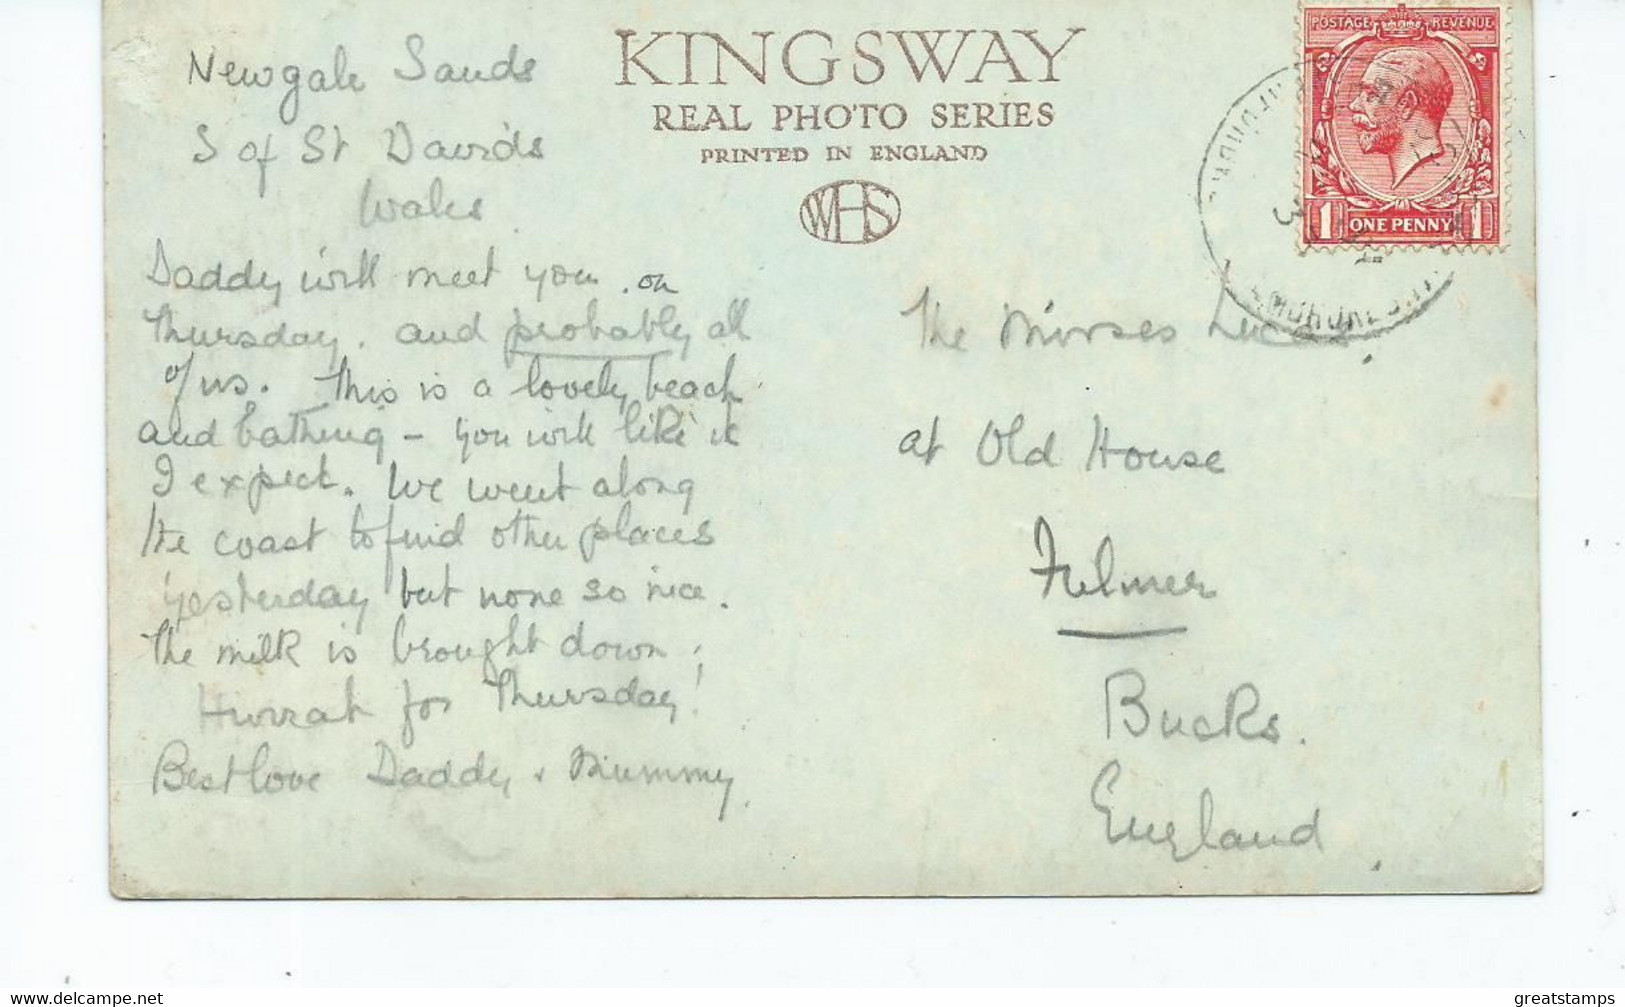 Newgale Sands
S of St Davids
Wales
Daddy will meet you on
Thursday. and probably all
of us. This is a lovely beach
and bathing - you will like it
I expect. We went along
the coast to find other places
yesterday but none so nice.
The milk is brought down;
Hurrah for Thursday!
Best love Daddy & Mummy.
KINGSWAY
REAL PHOTO SERIES
PRINTED IN ENGLAND
WHS
POSTAGE REVENUE
1 ONE PENNY 1
3
The Misses Lucas.
at Old House
Fulmer
Bucks.
England
http://www.delcampe.net
greatstamps